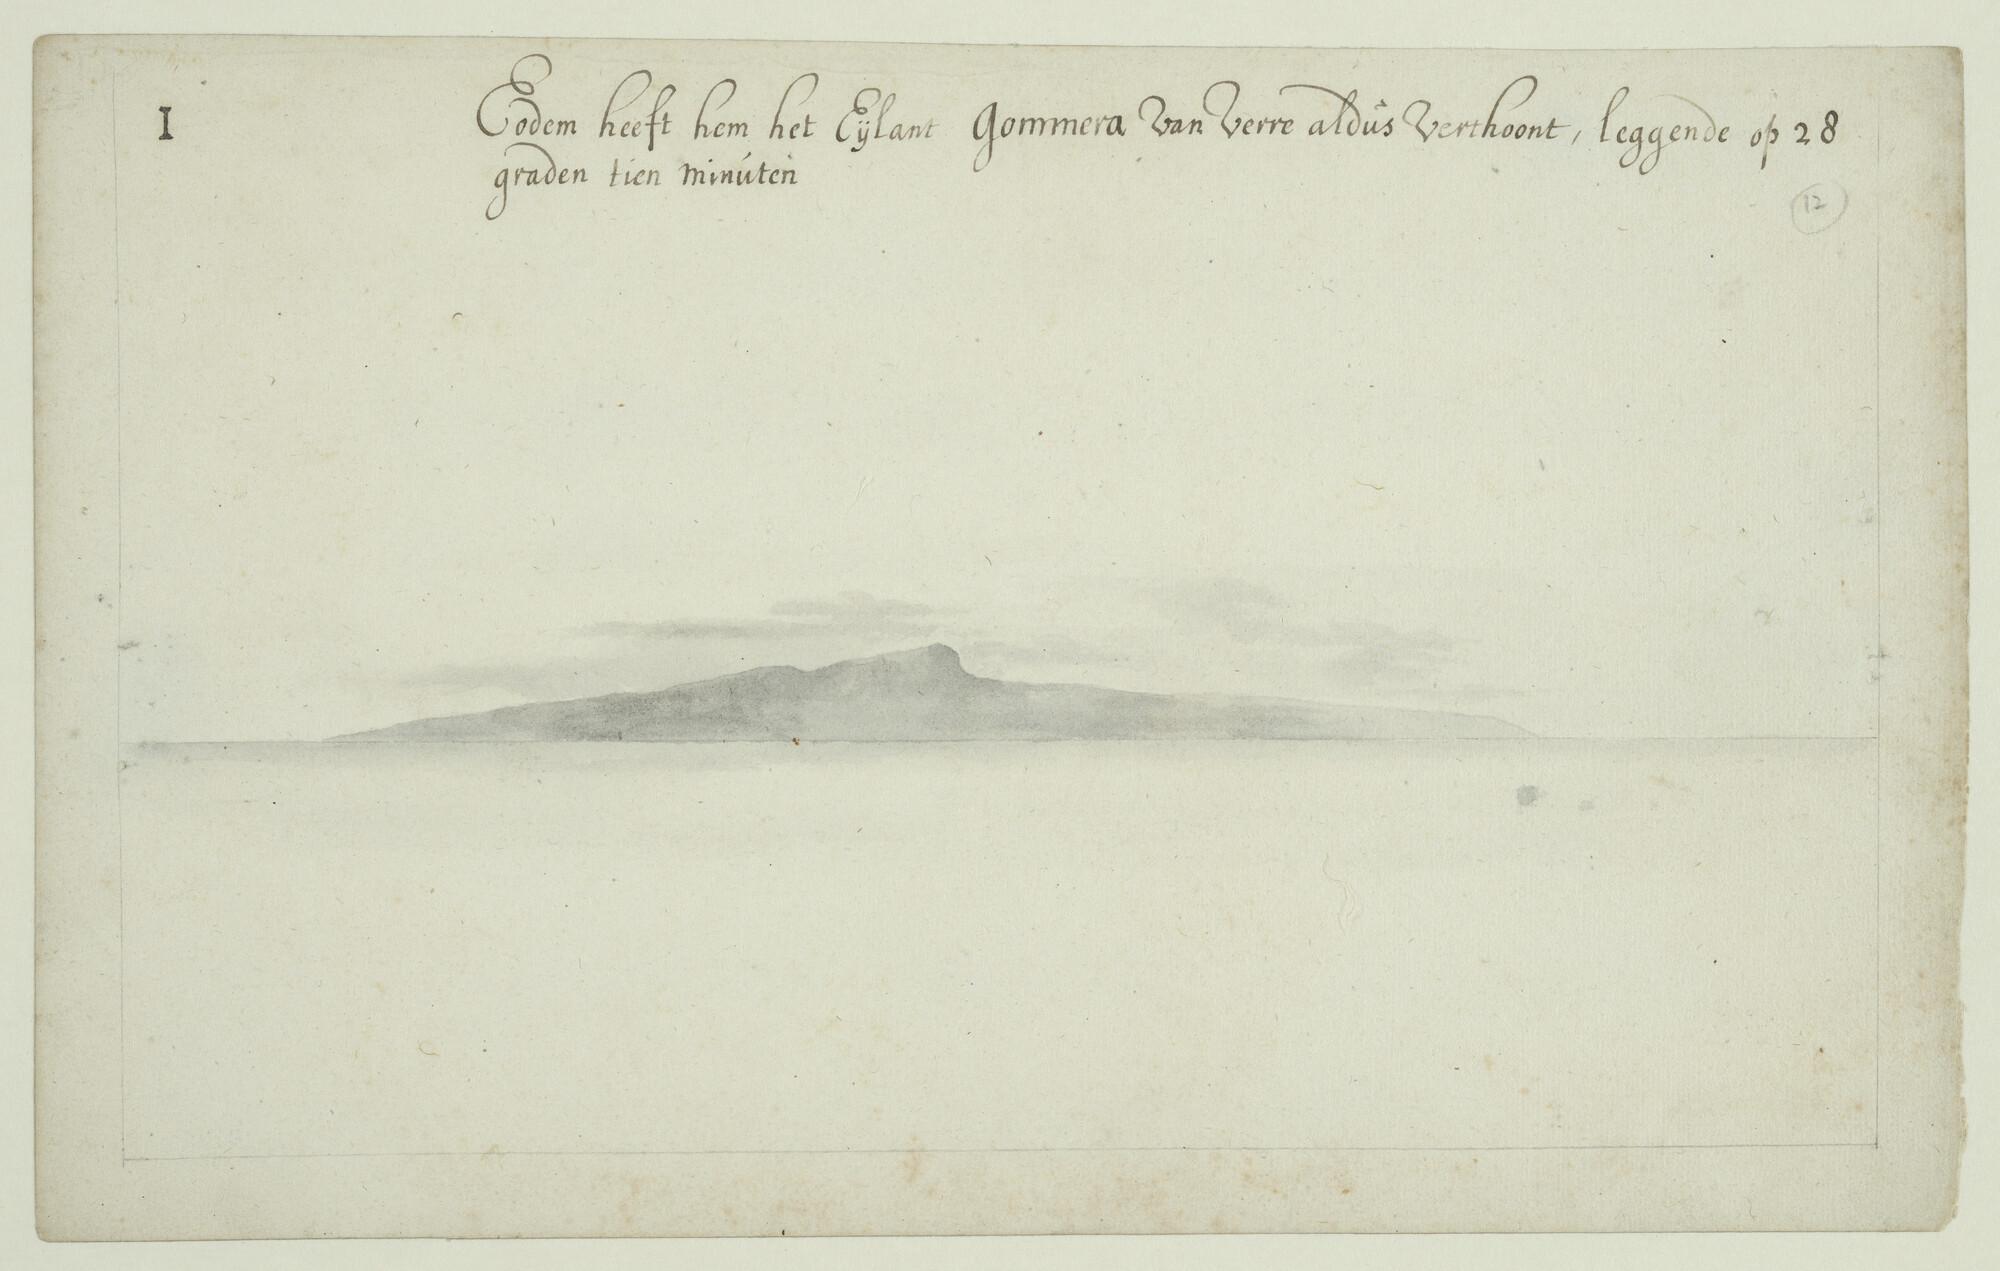 I
Eodem heeft hem het Eylant Gommera van verre aldus verthoont, leggende op 28
graden tien minuten
12